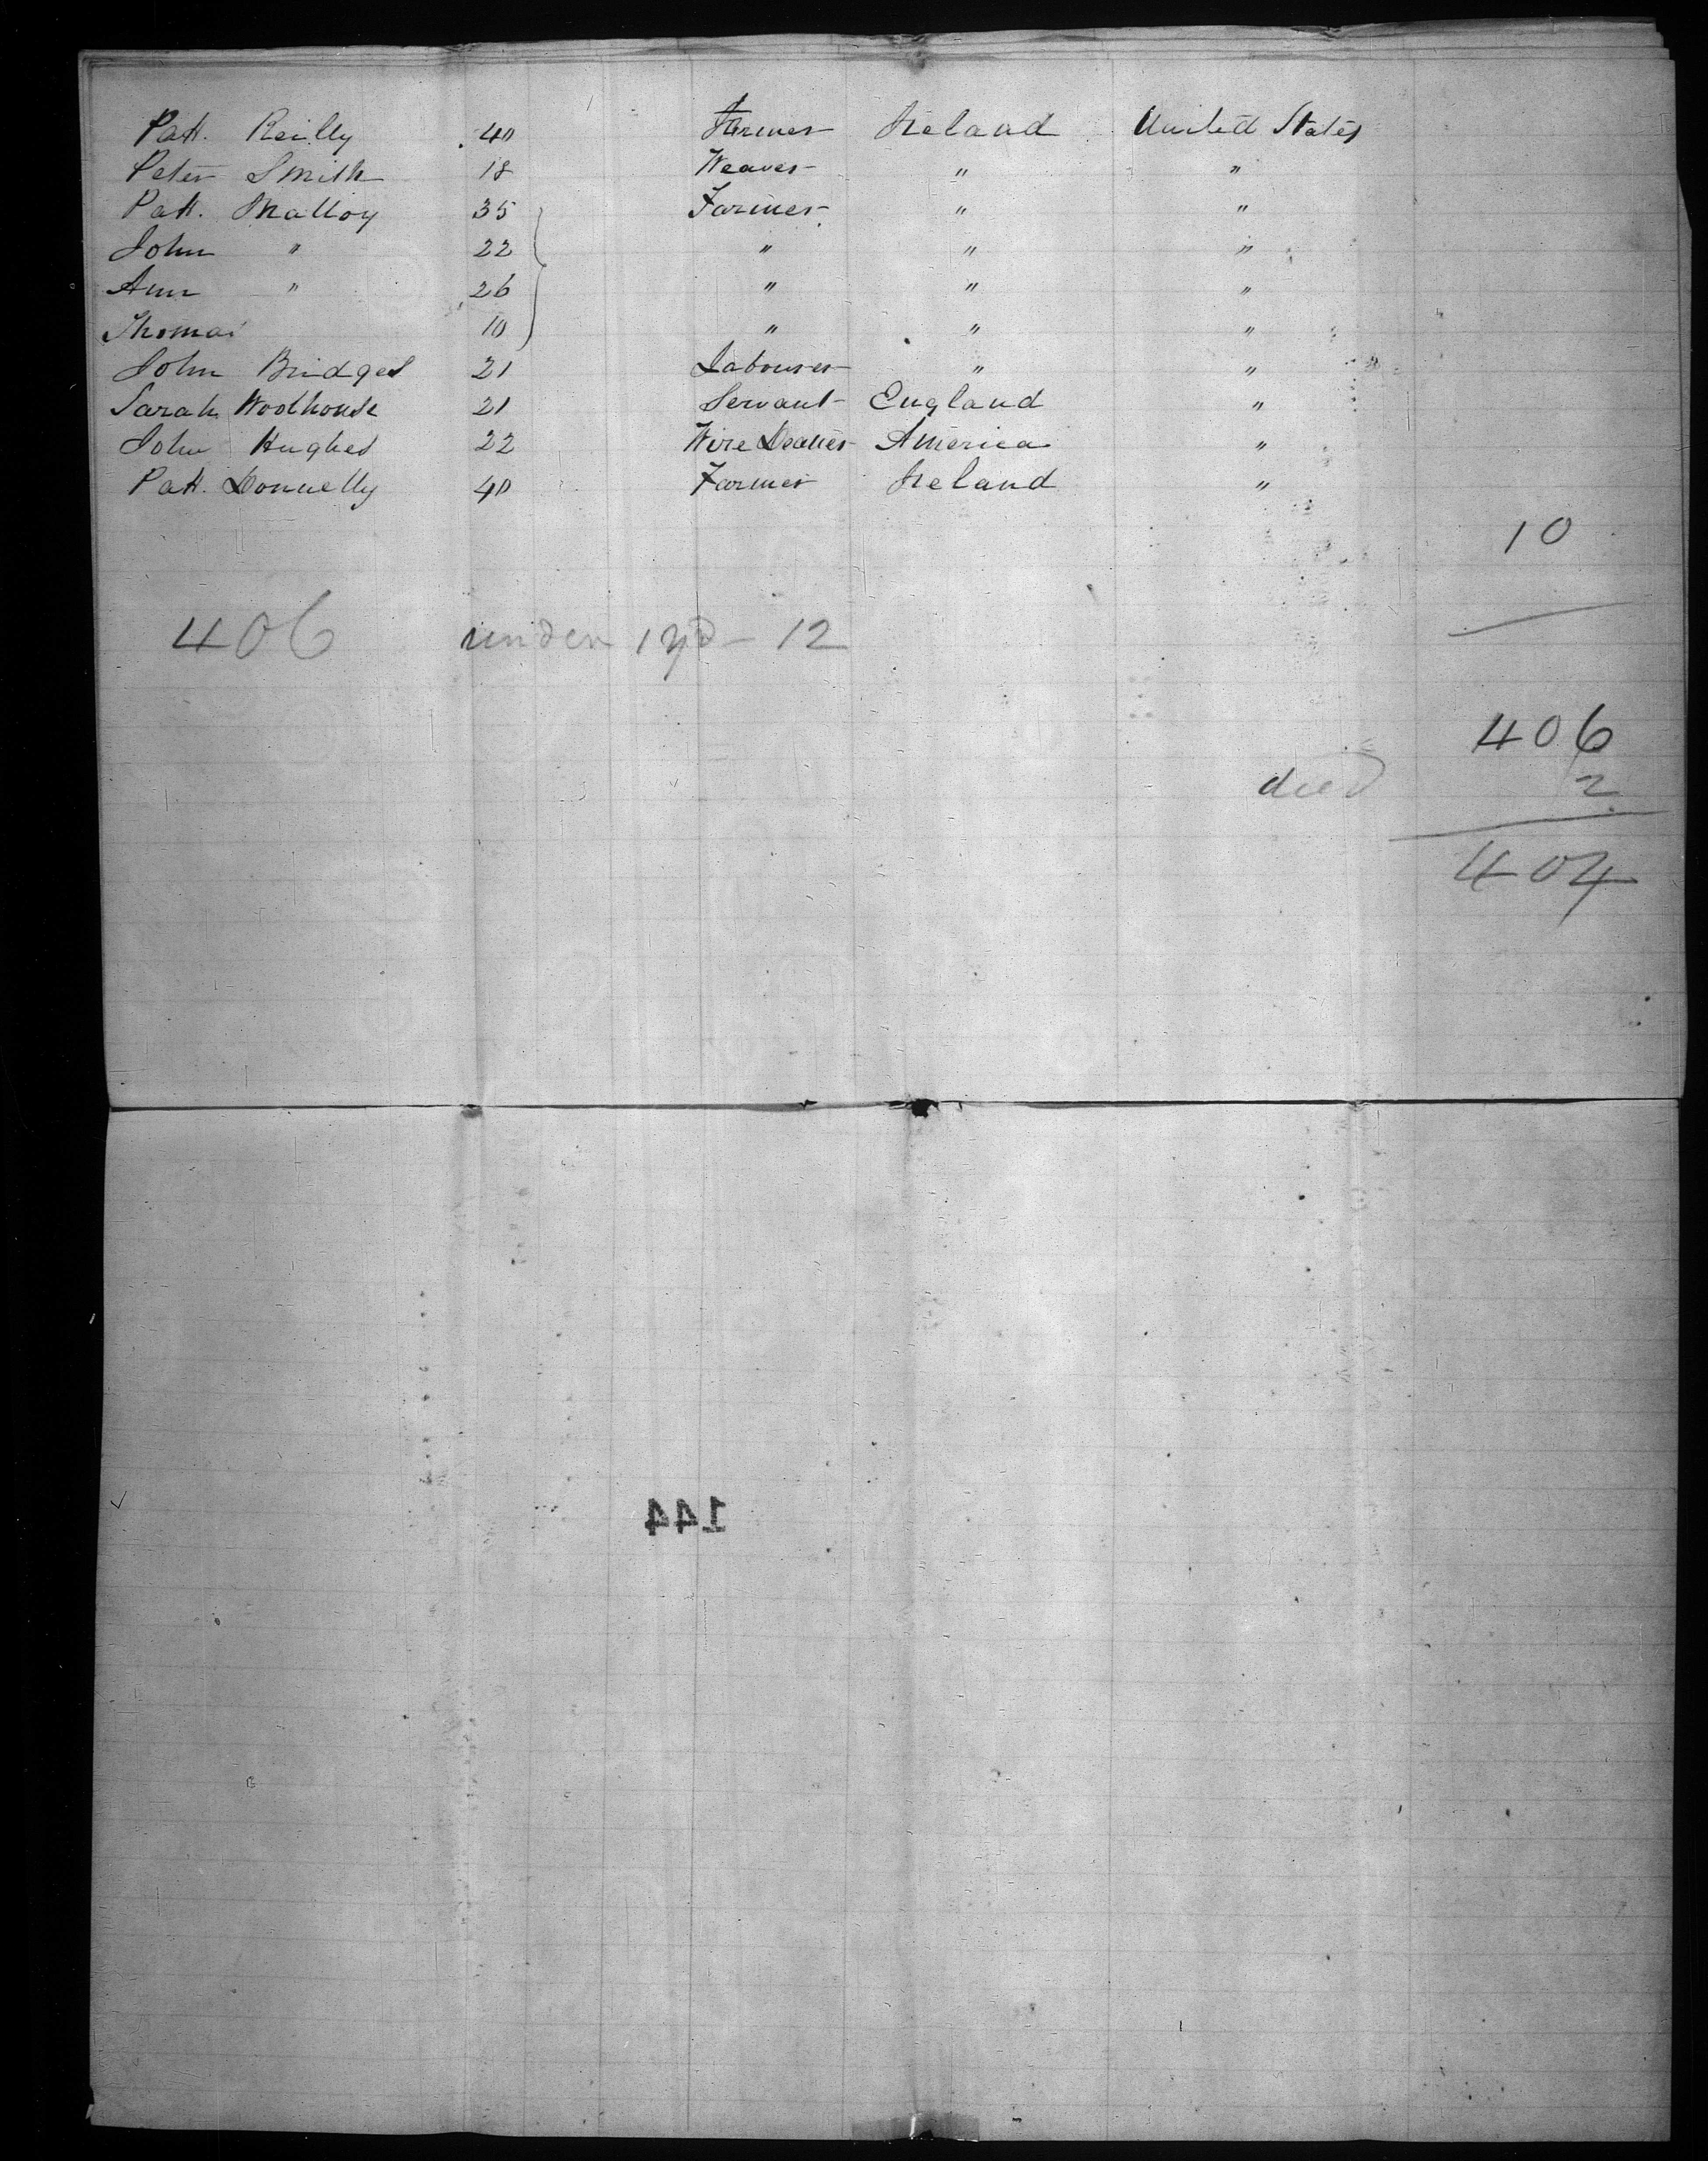 Patt. Reilly 40 Farmer Ireland United States
Peter Smith 18 Weaver " "
Patt. Malloy 35 Farmer " "
John " 22 " " "
Ann " 26 " " "
Thomas 10 " " "
John Bridges 21 Labourer " "
Sarah Woodhouse 21 Servant England "
John Hughes 22 Wire America "
Patt. Donnelly 40 Farmer Ireland "
10
406 under 1 12
406
died 2
404
144